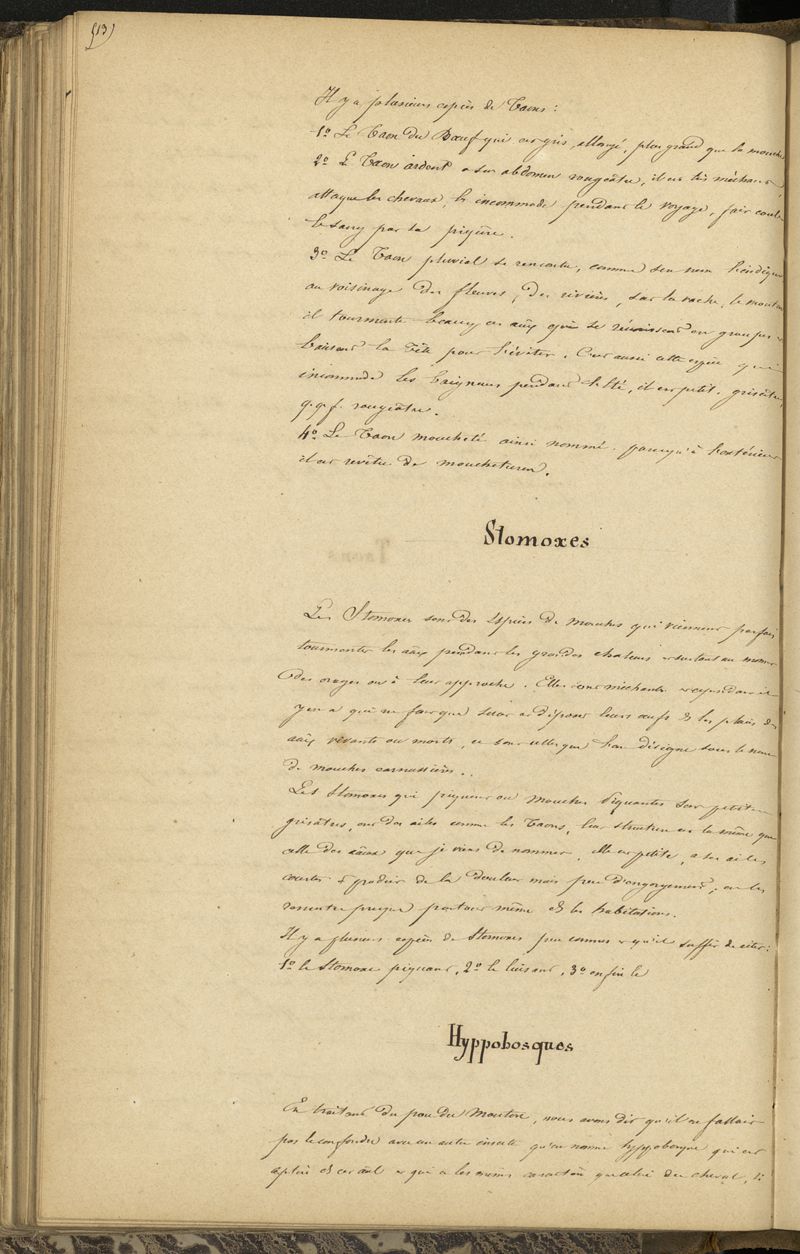 (13)
Il y a plusieurs espèces de Taons :
1º Le Taon du Bœuf qui est gris, allongé, plus grand que la mouche
2º L Taon ardent a son abdomen rougeâtre, il est très méchant,
attaque les chevaux, les incommode pendant le voyage, fait couler
le sang par sa piqûre.
3º Le Taon pluvial se rencontre, comme son nom l'indique
au voisinage des fleuves, des rivières, sur la vache, le mouton
il tourmente beauc. ces aux qui se réunissent en groupes et
baissent la tête pour l'éviter. C'est aussi cette espèce qui
incommode les baigneurs pendant l'été, il est petit, grisâtre,
q.q.f. rougeâtre.
4º Le Taon moucheté ainsi nommé parcequ'à l'extérieur
il est revêtu de mouchetures.
Stomoxes
Les Stomoxes sont des espèces de mouches qui viennent parfois
tourmenter les aux pendant les grandes chaleurs et surtout au moment
des orages ou à leur approche. Elles sont méchantes et cependant il
y en a qui ne font que sucer et déposer leurs œufs ds les plaies des
aux vivants ou morts, ce sont celles que l'on désigne sous le nom
de mouches carnassières.
Les Stomoxes qui piquent ou mouches piquantes sont petites
grisâtres, ont des ailes comme les Taons, leur structure est la même que
celle des aux que je viens de nommer, elle est petite, a ses ailes
courtes et produit de la douleur mais peu d'engorgement, on les
rencontre presque partout même ds les habitations.
Il y a plusieurs espèces de Stomoxes peu connues et qu'il suffit de citer :
1º le Stomoxe piquant, 2º le luisant, 3º enfin le
Hyppobosques
En traitant du pou du Mouton, nous avons dit qu'il ne fallait
pas le confondre avec un autre insecte qu'on nomme hyppobosque qui est
aptère ds cet aal et qui a les mêmes caractères que celui du cheval, si